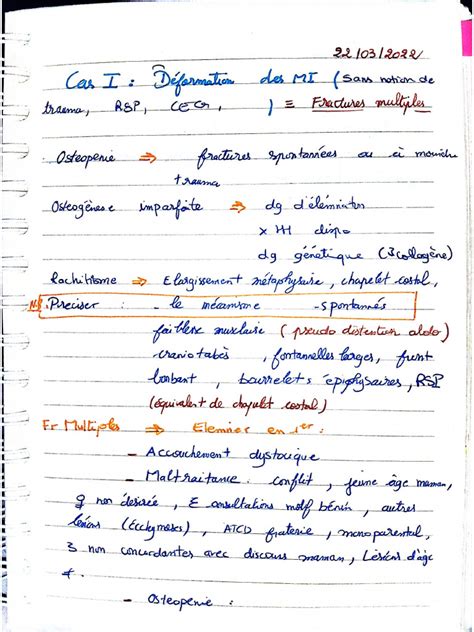 22/03/2022
Cas I : Déformation des MI (Sans notion de
trauma, RSP, ) ≡ Fractures multiples
Osteopenie ⇒ fractures spontannées ou ci moindre
trauma
Osteogénese imparfaite → dg d'élémination
x HH dispo
dg génétique (Collagène)
Rachitisme ⇒ Elargissement métaphysaire, chapelet costal,
Preciser : - le mécanisme - spontannés
faiblesse musclaire (pseudo distention abdo)
craniotabès, fontannelles larges, front
bombant, bourrelets épiphysaires, RSP
(équivalent de chapelet costal)
Fr Multiples ⇒ Elemnier en 1er :
- Accouchement dystocique
- Maltraitance : conflit, jeune âge maman,
non désirée, consultations motif bénin, autres
lésions (Ecchymoses), ATCD fraterie, monoparental,
non concordantes avec discours maman, Lésions d'âge
≠.
- Osteopenie :